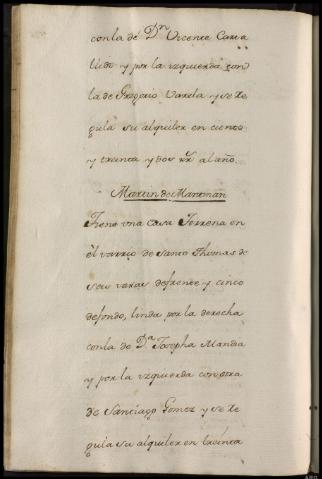 con la de Dn Vicente Caria
lude y por la izquierda con
la de Gregorio Varela y se re
gula su alquiler en ciento
y treinta y dos rr al año.
Martin de Manman
Tiene una casa Terrena en
el varrio de Santo Thomas de
seis varas de frente y cinco
de fondo, linda por la derecha
con la de Da Josepha Mandia
y por la izquierda con otra
de Santiago Gomez y se re
gula su alquiler en treinta